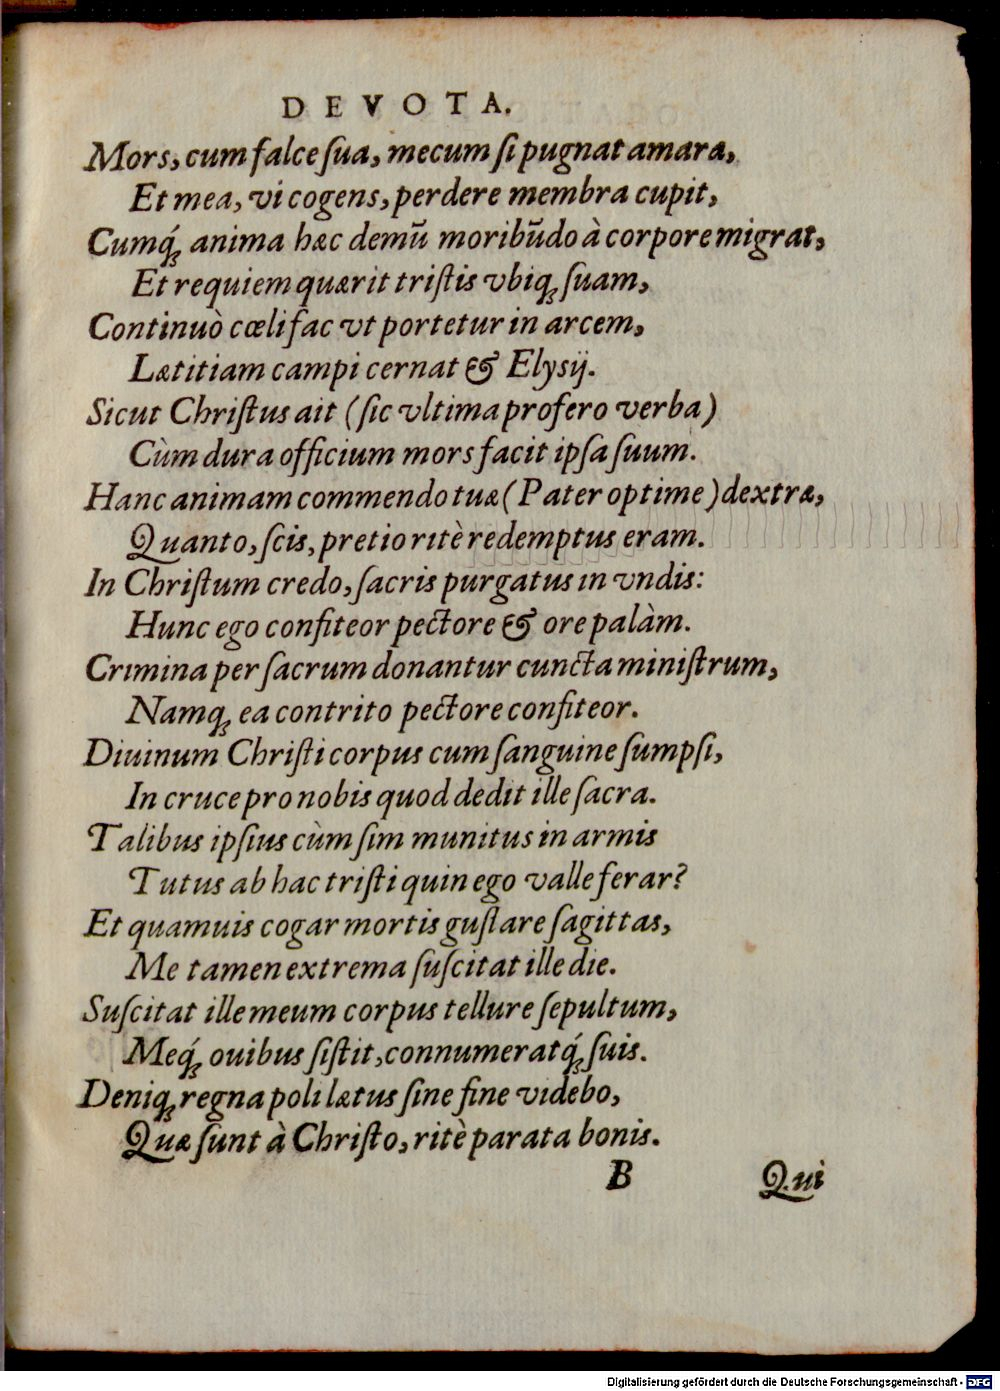 DEVOTA.
Mors, cum falce ſua, mecum ſi pugnat amara,
Et mea, vi cogens, perdere membra cupit,
Cumq́ꝫ anima hæc demũ moribũdo à corpore migrat,
Et requiem quærit triſtis vbiqꝫ ſuam,
Continuò cœli fac vt portetur in arcem,
Lætitiam campi cernat & Elysij.
Sicut Chriſtus ait (ſic vltima profero verba)
Cùm dura officium mors facit ipſa ſuum.
Hanc animam commendo tuæ (Pater optime) dextræ,
Quanto, ſcis, pretio ritè redemptus eram.
In Chriſtum credo, ſacris purgatus in vndis:
Hunc ego confiteor pectore & ore palàm.
Crimina per ſacrum donantur cuncta miniſtrum,
Namqꝫ ea contrito pectore confiteor.
Diuinum Chriſti corpus cum ſanguine ſumpſi,
In cruce pro nobis quod dedit ille ſacra.
Talibus ipſius cùm ſim munitus in armis
Tutus ab hac triſti quin ego valle ferar?
Et quamuis cogar mortis guſtare ſagittas,
Me tamen extrema ſuſcitat ille die.
Suſcitat ille meum corpus tellure ſepultum,
Meq́ꝫ ouibus ſiſtit, connumeratq́ꝫ ſuis.
Deniqꝫ regna poli lætus ſine fine videbo,
Quæ ſunt à Chriſto, ritè parata bonis.
B Qui
Digitalisierung gefördert durch die Deutsche Forschungsgemeinschaft - DFG